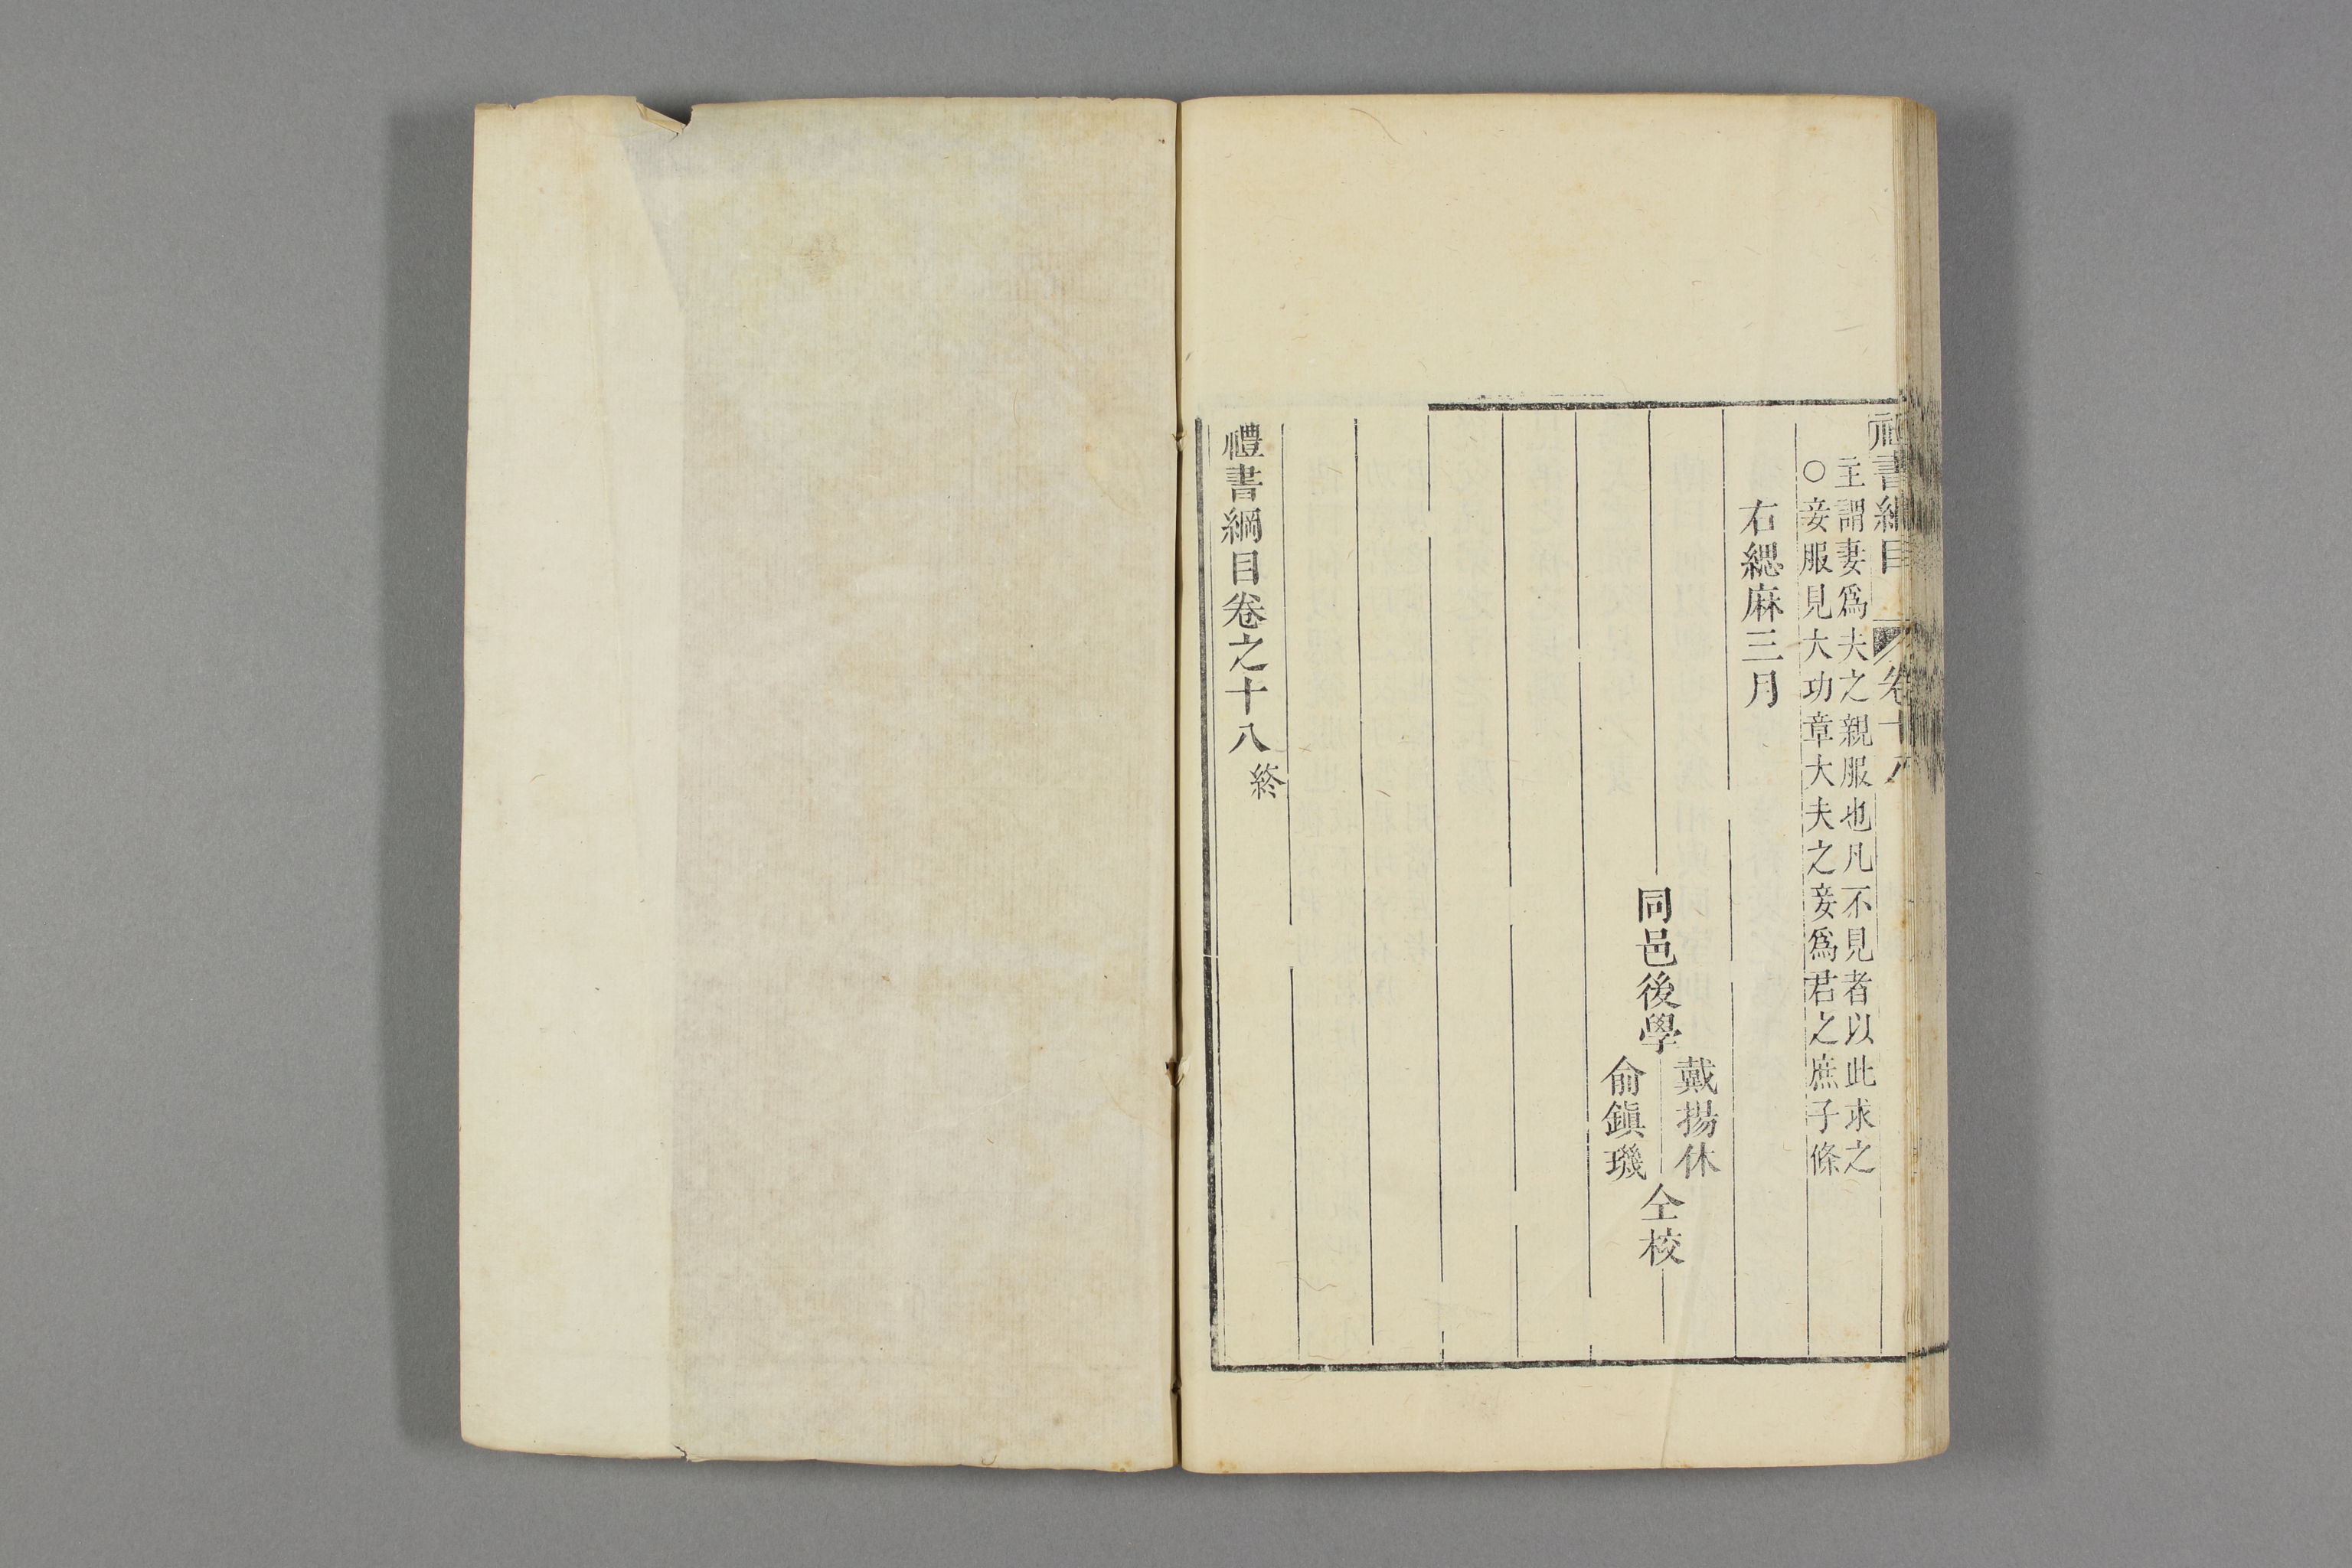 禮書綱目 卷十八
主謂妻爲夫之親服也凡不見者以此求之
○妾服見大功章大夫之妾爲君之庶子條
右緦麻三月
同邑後學 戴揚休 俞鎭璣 仝校
禮書綱目卷之十八 終